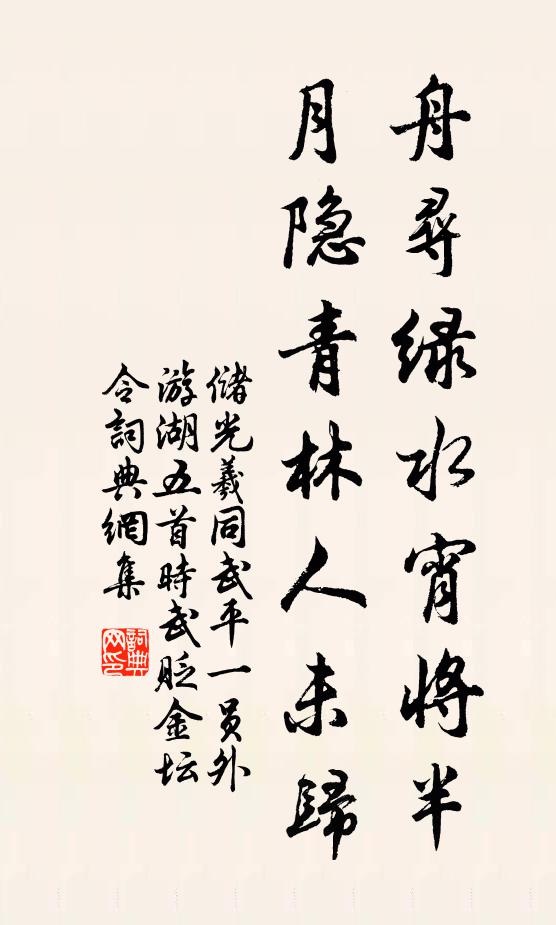 舟尋绿水宵将半
月隐青林人未歸
储光羲同武平一员外
游湖五首時武贬金坛
令詞典網集
詞典网印